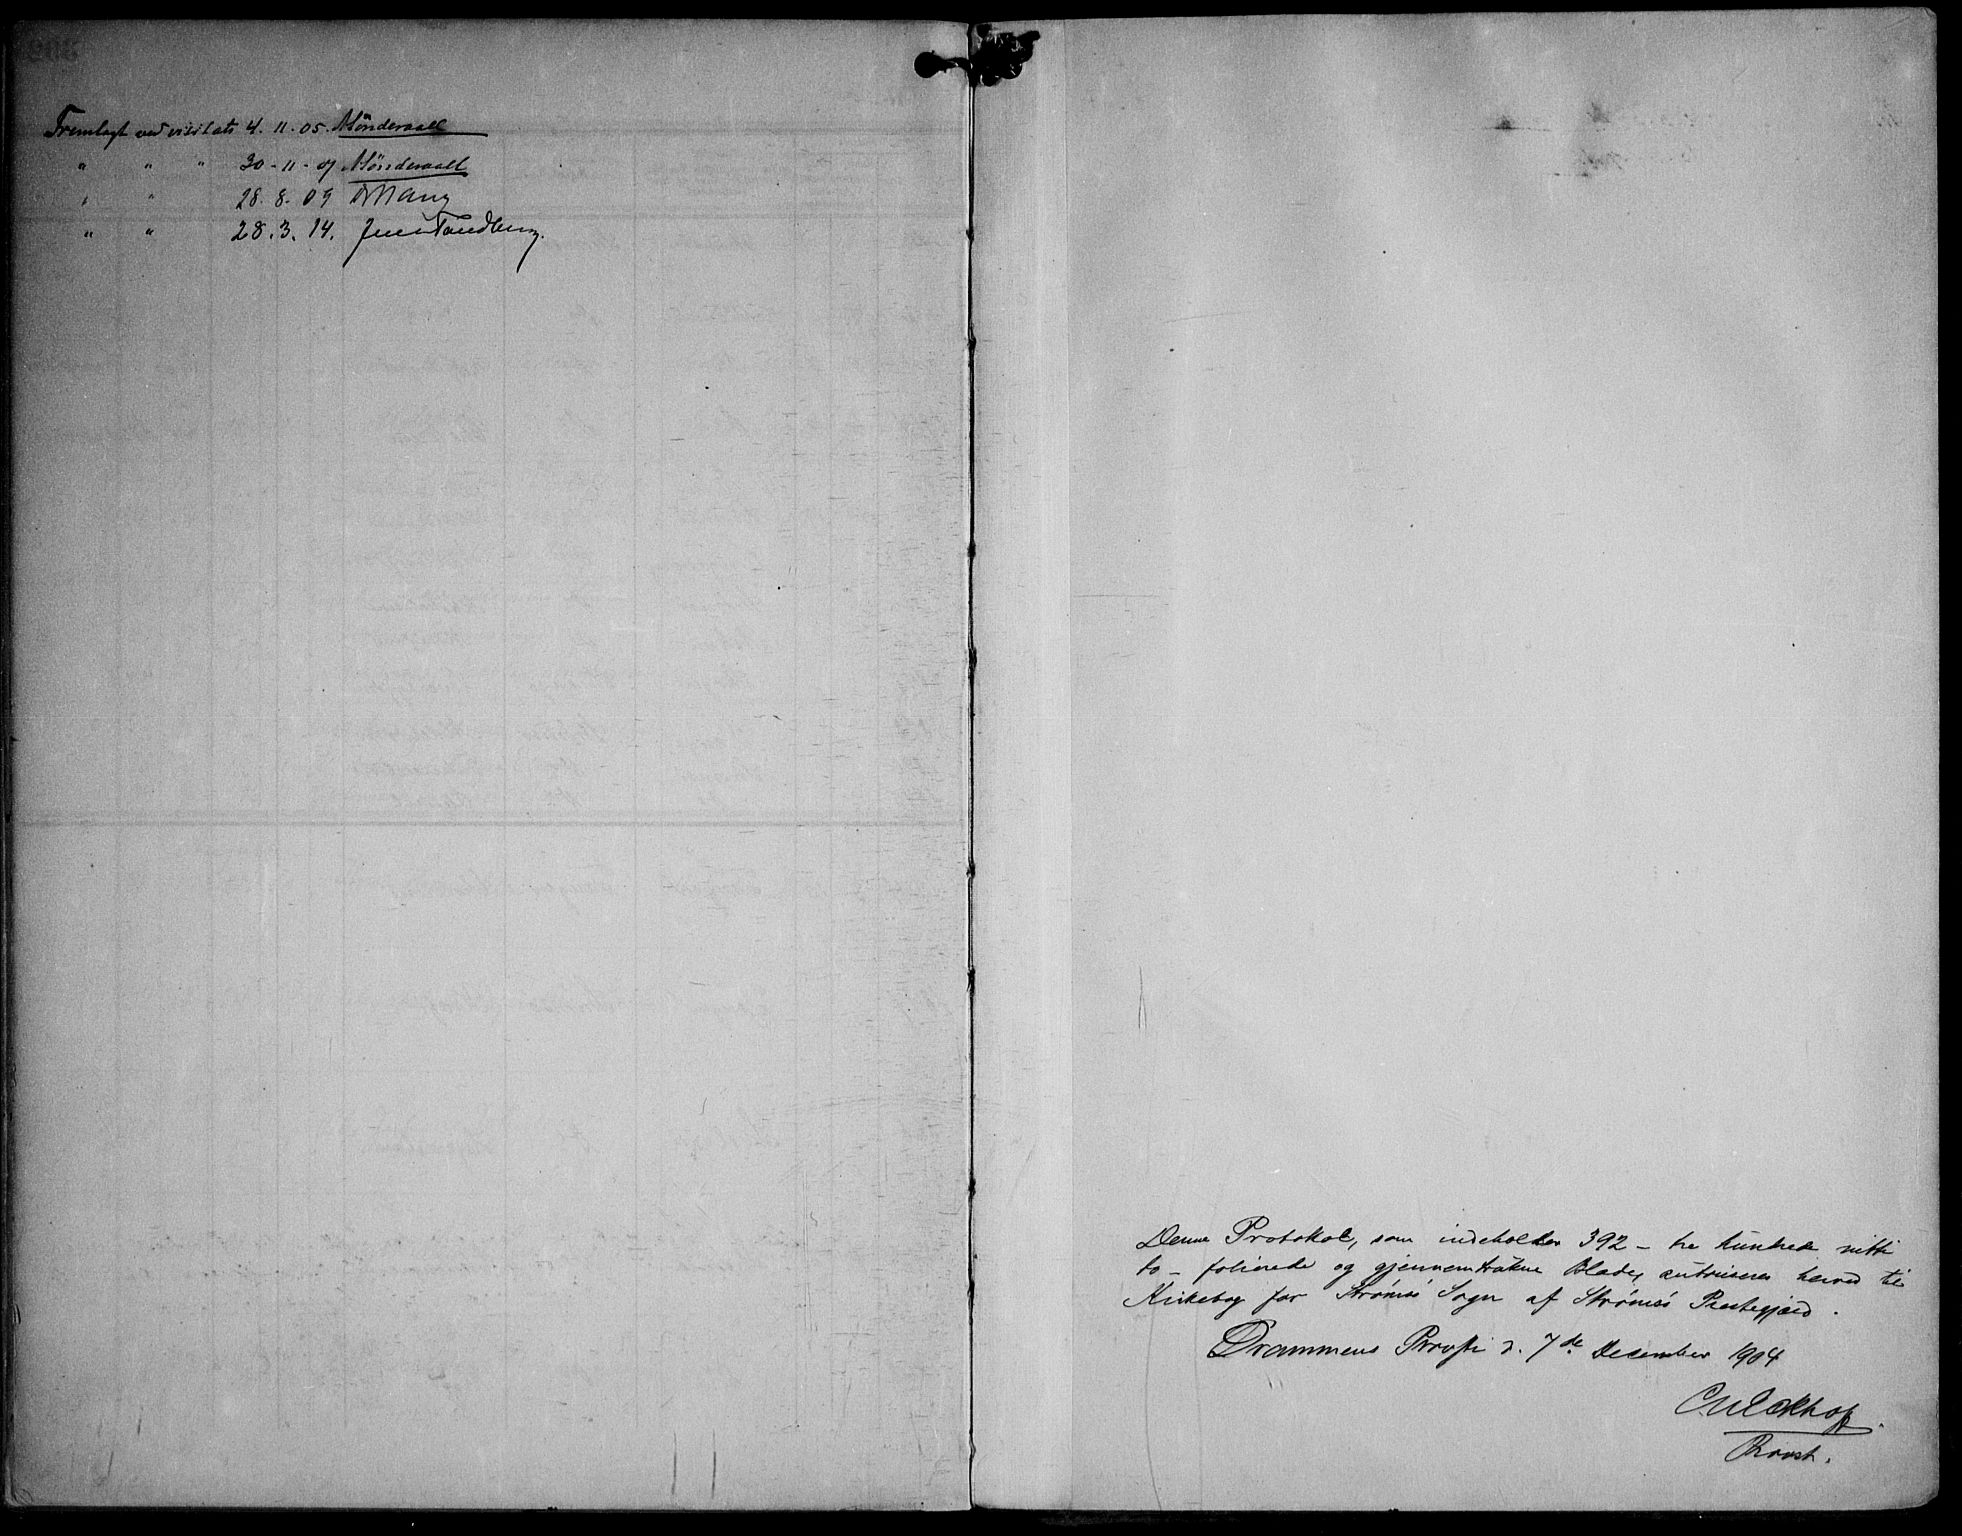 Fremlagt ved visitats 4.11.05.
" " " 30-11-07
" " 28.8.09
" " 28.3.14. Jens Tandberg.
Denne Protokol, som indeholder 392 - tre hundrede nitti
to - folierede og gjennemtrukne Blade, autoriseres herved til
Kirkebog for Strømsø Sogn af Strømsø Prestegjæld.
Drammens Provsti d. 7de December 1904
Eckhoff.
Provst.